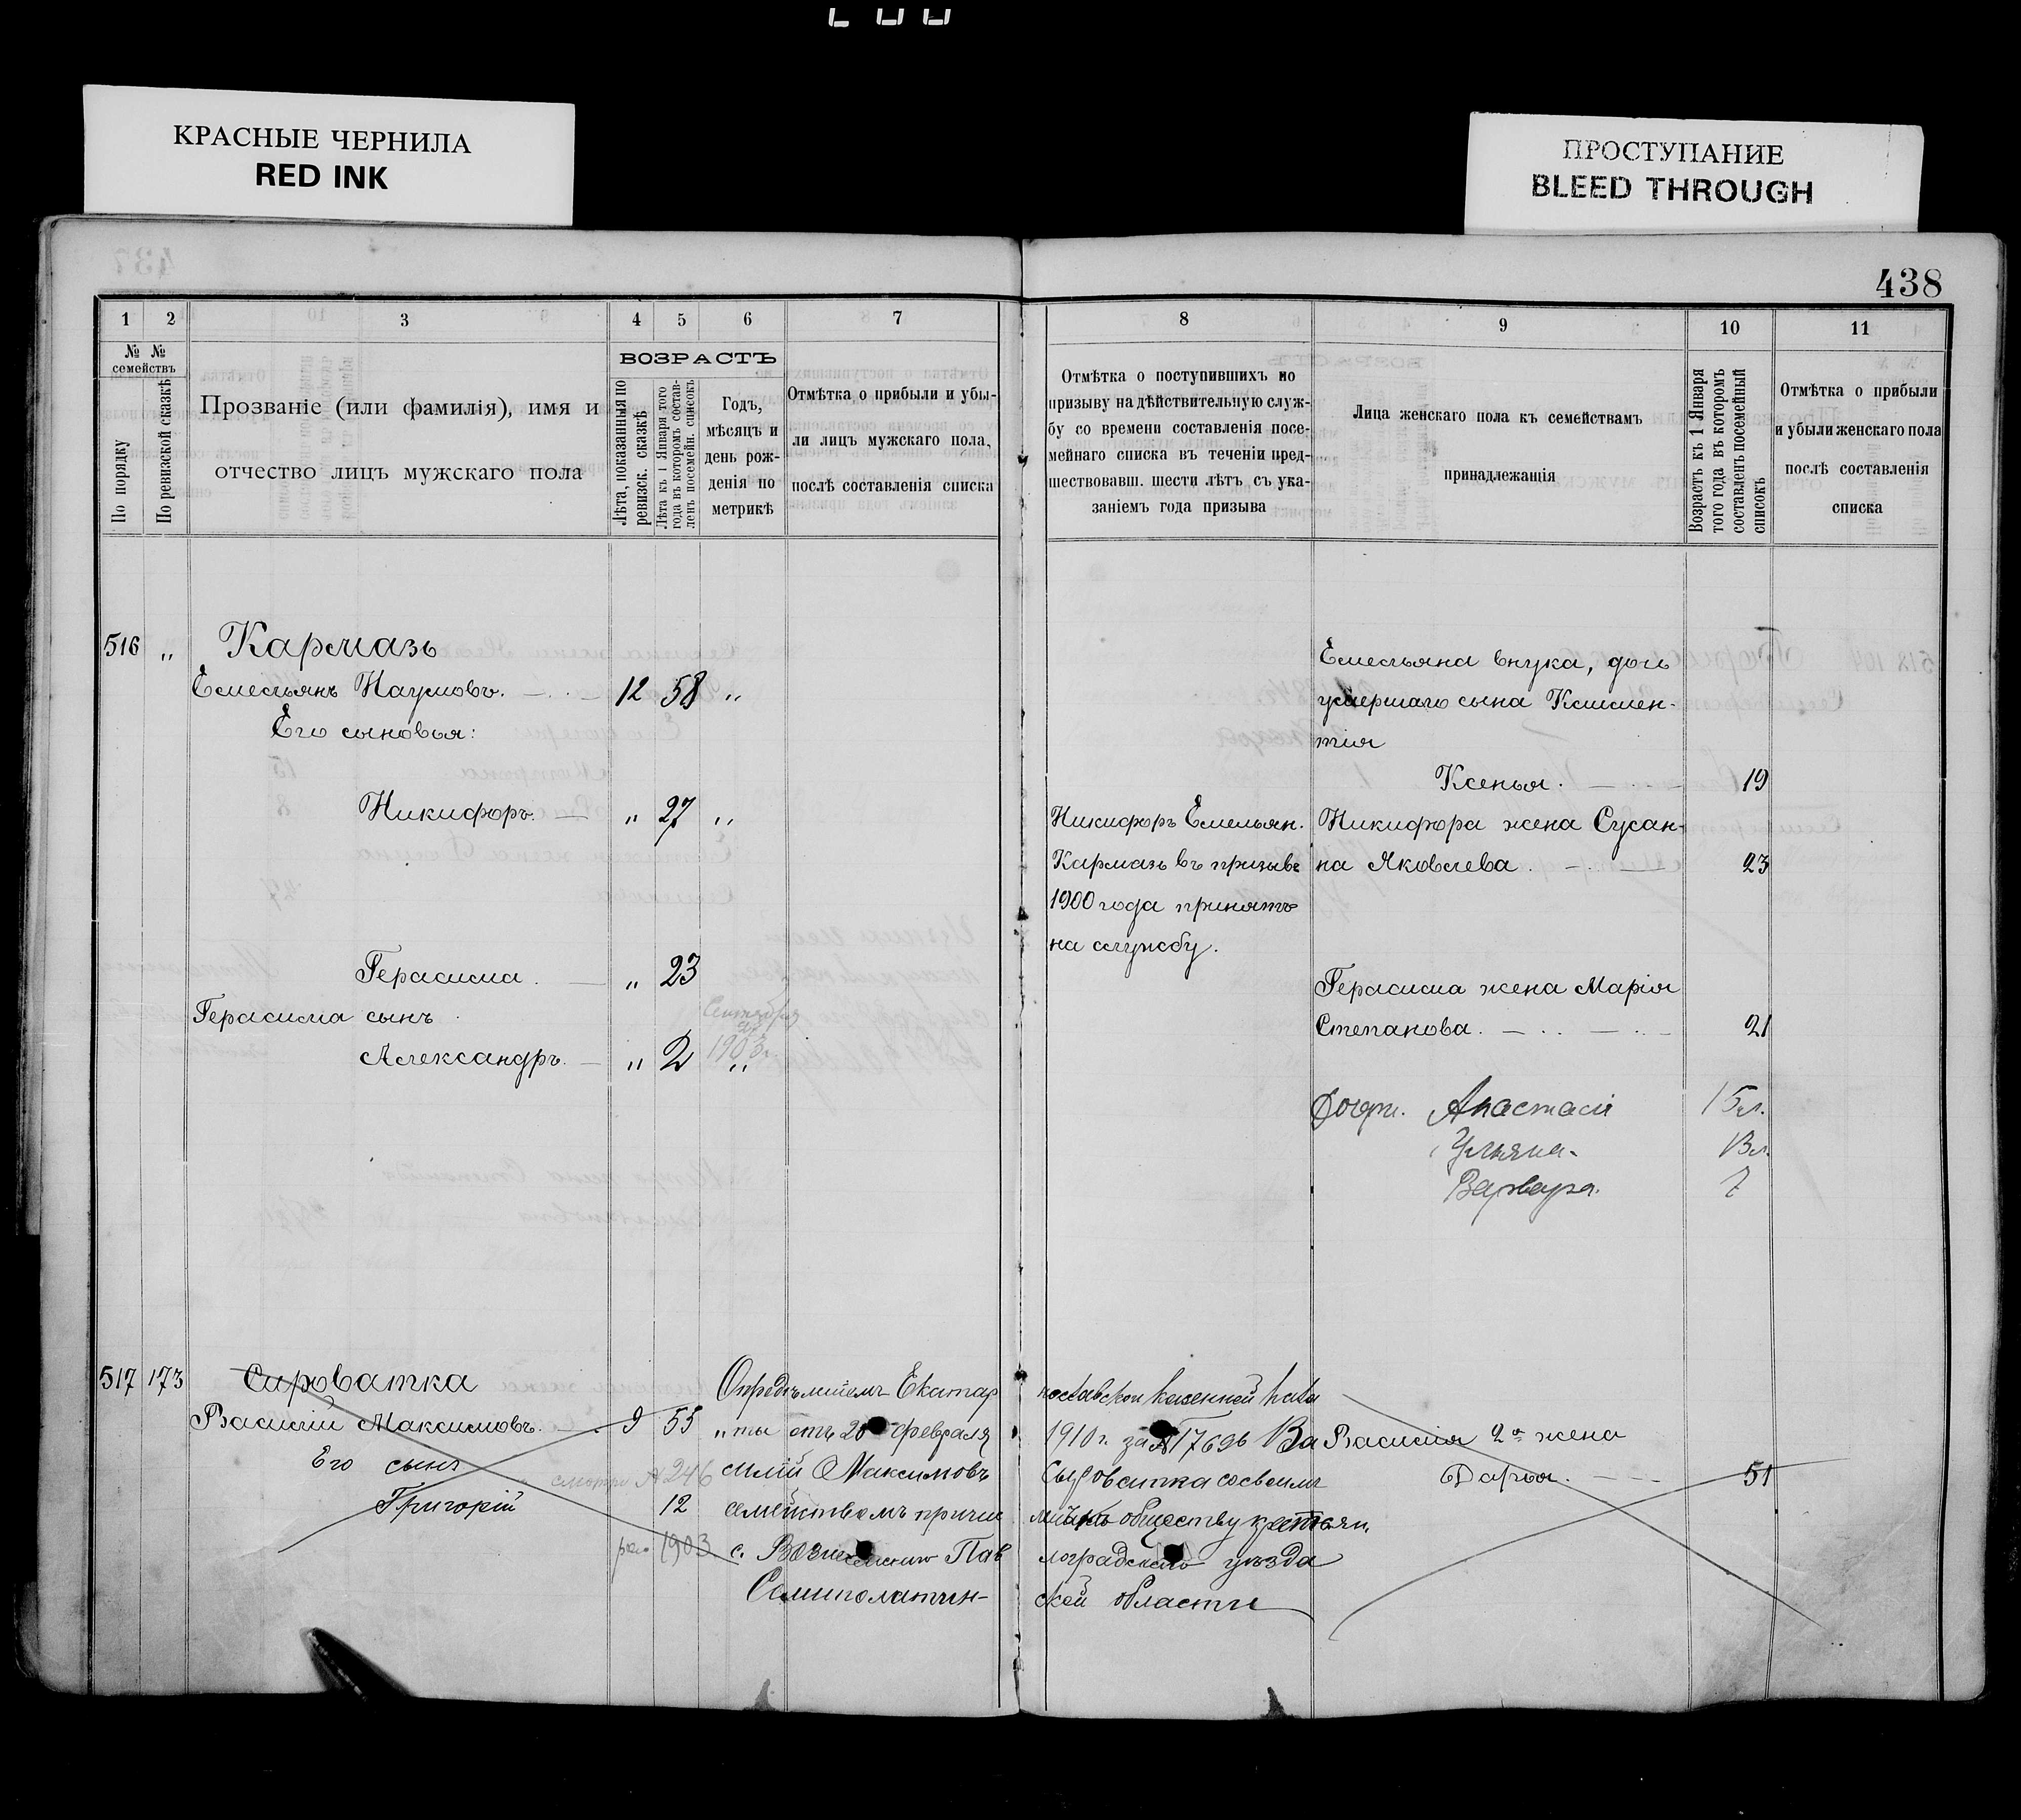 КРАСНЫЕ ЧЕРНИЛА
RED INK
ПРОСТУПАНИЕ
BLEED THROUGH
438
1 2 3 4 5 6 7
№ № семействъ
По порядку
По ревизской сказкѣ
Прозваніе (или фамилія), имя и
отчество лицъ мужскаго пола
ВОЗРАСТЪ
Лѣта, показанныя по
ревизск. сказкѣ
Лѣта къ 1 Января того
года въ которомъ состав-
ленъ посемейн. списокъ
Годъ,
мѣсяцъ и
день рож-
денія по
метрикѣ
Отмѣтка о прибыли и убы-
ли лицъ мужскаго пола,
послѣ составленія списка
516 „ Кармазь
Емельянъ Наумовъ. 12 58 „
Его сыновья:
Никифоръ. „ 27 „
Герасима. „ 23
Герасима сынъ
Сентября
1903 г.
Александръ. „ 2 „
517 173 Сироватка
Василій Максимовъ. 9 55
Его сынъ
смотри № 246
Григорій 12
1903
Опредѣленіемъ Екатер
„ты отъ 20 февраля
силій Максимовъ
семействомъ причис
с. Вознесенскаго Пав
Семиполатин-
8 9 10 11
Отмѣтка о поступившихъ по
призыву на дѣйствительную служ-
бу со времени составленія посе-
мейнаго списка въ теченіи пред-
шествовавш. шести лѣтъ съ ука-
заніемъ года призыва
Лица женскаго пола къ семействамъ
принадлежащія
Возрастъ къ 1 Января
того года въ которомъ
составленъ посемейный
списокъ
Отмѣтка о прибыли
и убыли женскаго пола
послѣ составленія
списка
Емельяна внука, дочь
умершаго сына Климен-
тія
Ксенья. 19
Никифоръ Емельян.
Кармазь въ призывъ
1900 года принятъ
на службу.
Никифора жена Сусан-
на Яковлева. 23
Герасима жена Марія
Степанова. 21
Дочери. Анастасія 15 л.
Ульяна. 13 л.
Варвара. 7
нославской казенной пала
1910 г. за № 17696 Ва
Сыроватка со своимъ
обществу крестьян.
лоградскаго уѣзда
ской области
Василія 2я жена
Дарья. 51